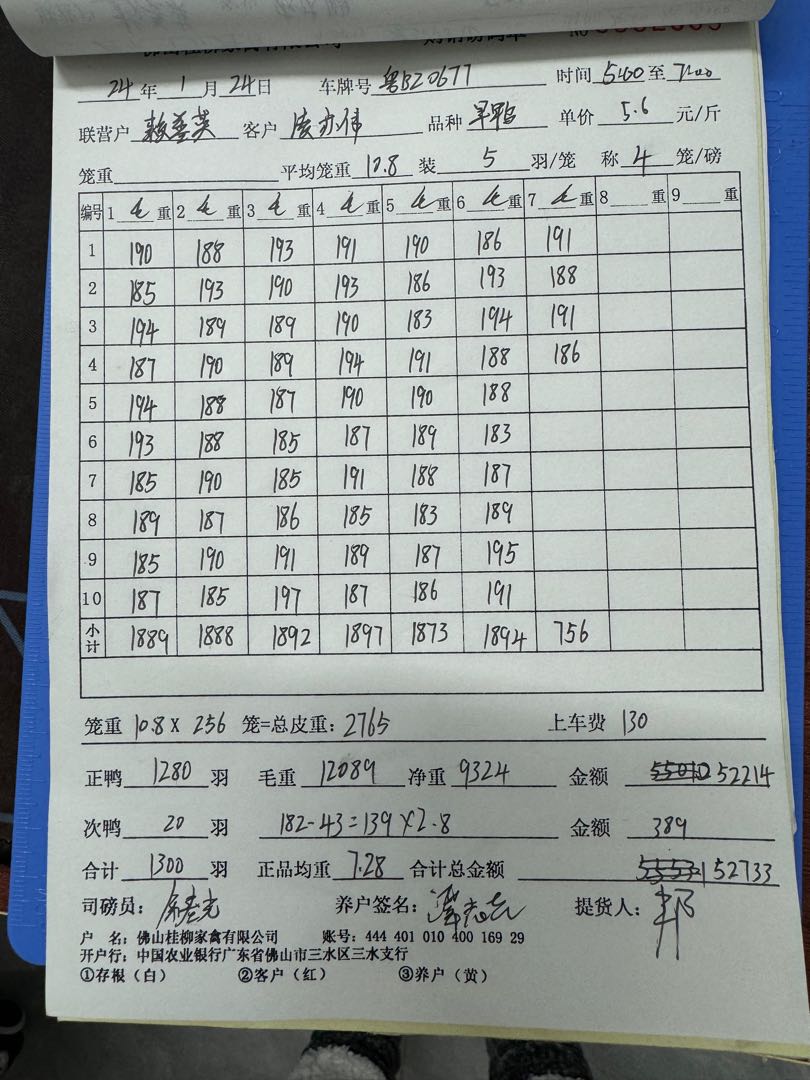 佛山桂柳家禽有限公司 No
24年 1 月 24日 车牌号 粤BZ0677 时间 5:00 至 7:00
联营户 客户 品种 旱鸭 单价 5.6 元/斤
笼重 平均笼重 10.8 装 5 羽/笼 称 4 笼/磅
编号 1 重 2 重 3 重 4 重 5 重 6 重 7 重 8 重 9 重
1 190 188 193 191 190 186 191
2 185 193 190 193 186 193 188
3 194 189 189 190 183 194 191
4 187 190 189 194 191 188 186
5 194 188 187 190 190 188
6 193 188 185 187 189 183
7 185 190 185 191 188 187
8 189 187 186 185 183 189
9 185 190 191 189 187 195
10 187 185 197 187 186 191
小计 1889 1888 1892 1897 1873 1894 756
笼重 10.8 X 256 笼=总皮重: 2765 上车费 130
正鸭 1280 羽 毛重 12089 净重 9324 金额 52214
次鸭 20 羽 182-43=139×2.8 金额 389
合计 1300 羽 正品均重 7.28 合计总金额 52733
司磅员: 养户签名: 提货人: 邦
户 名: 佛山桂柳家禽有限公司 账号: 444 401 010 400 169 29
开户行: 中国农业银行广东省佛山市三水区三水支行
①存根（白） ②客户（红） ③养户（黄）